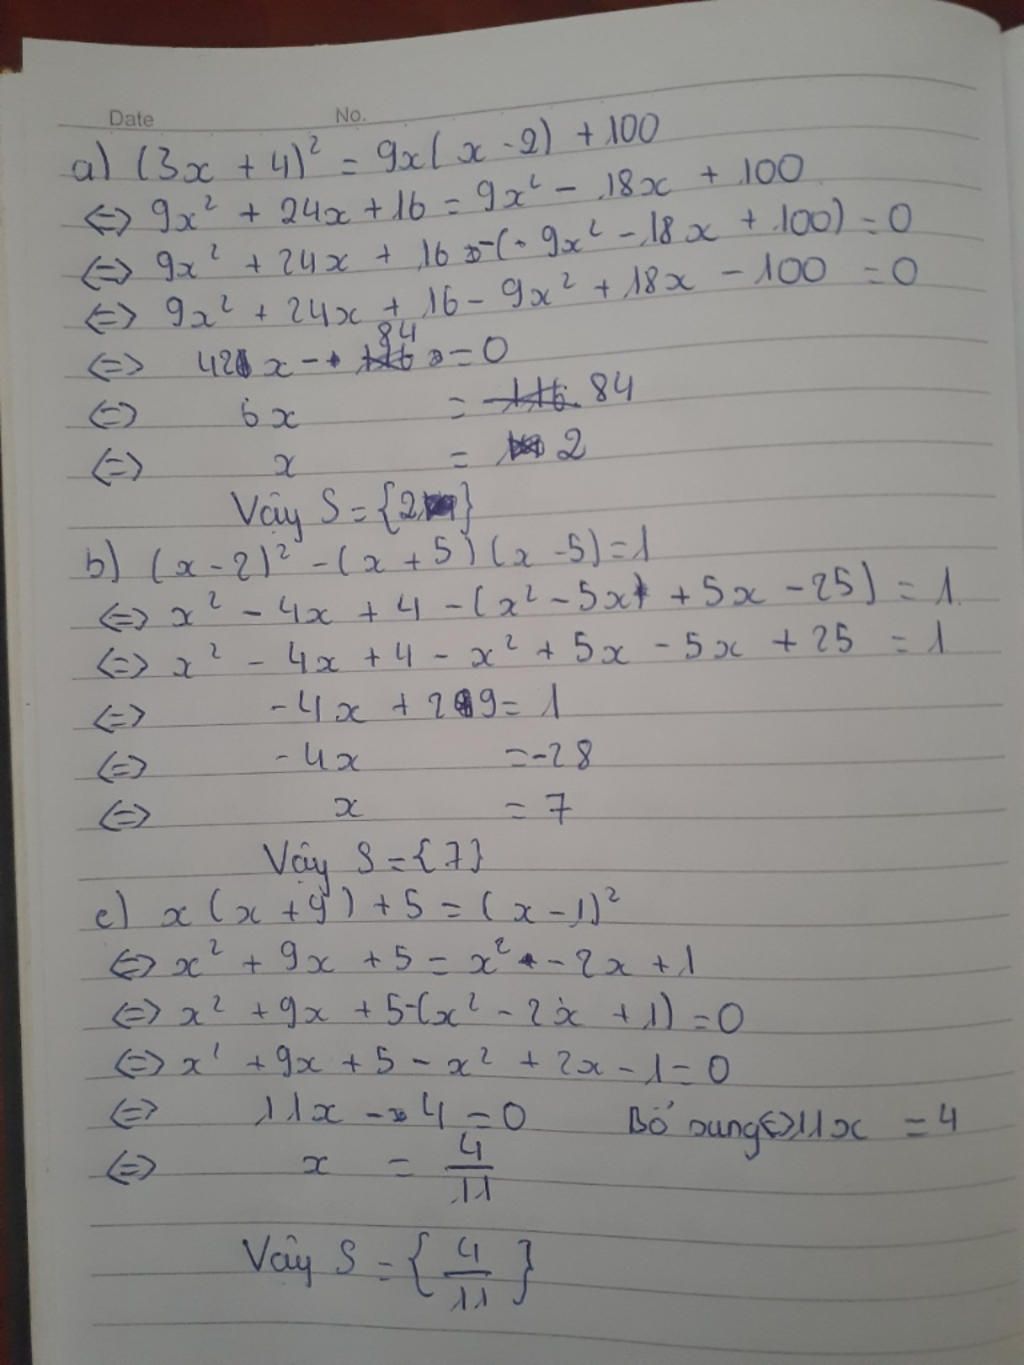 Date No.
a) (3x + 4)² = 9x( x - 2) + 100
⇔ 9x² + 24x + 16 = 9x² - 18x + 100
⇔ 9x² + 24x + 16 -( 9x² - 18x + 100) = 0
⇔ 9x² + 24x + 16 - 9x² + 18x - 100 = 0
⇔ 42x - 84 = 0
⇔ 6x = 84
⇔ x = 2
Vậy S = {2}
b) (x - 2)² - (x + 5)(x - 5) = 1
⇔ x² - 4x + 4 - (x² - 5x + 5x - 25) = 1
⇔ x² - 4x + 4 - x² + 5x - 5x + 25 = 1
⇔ -4x + 29 = 1
⇔ -4x = -28
⇔ x = 7
Vậy S = {7}
c) x(x + 9) + 5 = (x - 1)²
⇔ x² + 9x + 5 = x² - 2x + 1
⇔ x² + 9x + 5 -(x² - 2x + 1) = 0
⇔ x² + 9x + 5 - x² + 2x - 1 = 0
⇔ 11x - 4 = 0 Bổ sung ⇔ 11x = 4
⇔ x = 4/11
Vậy S = { 4/11 }